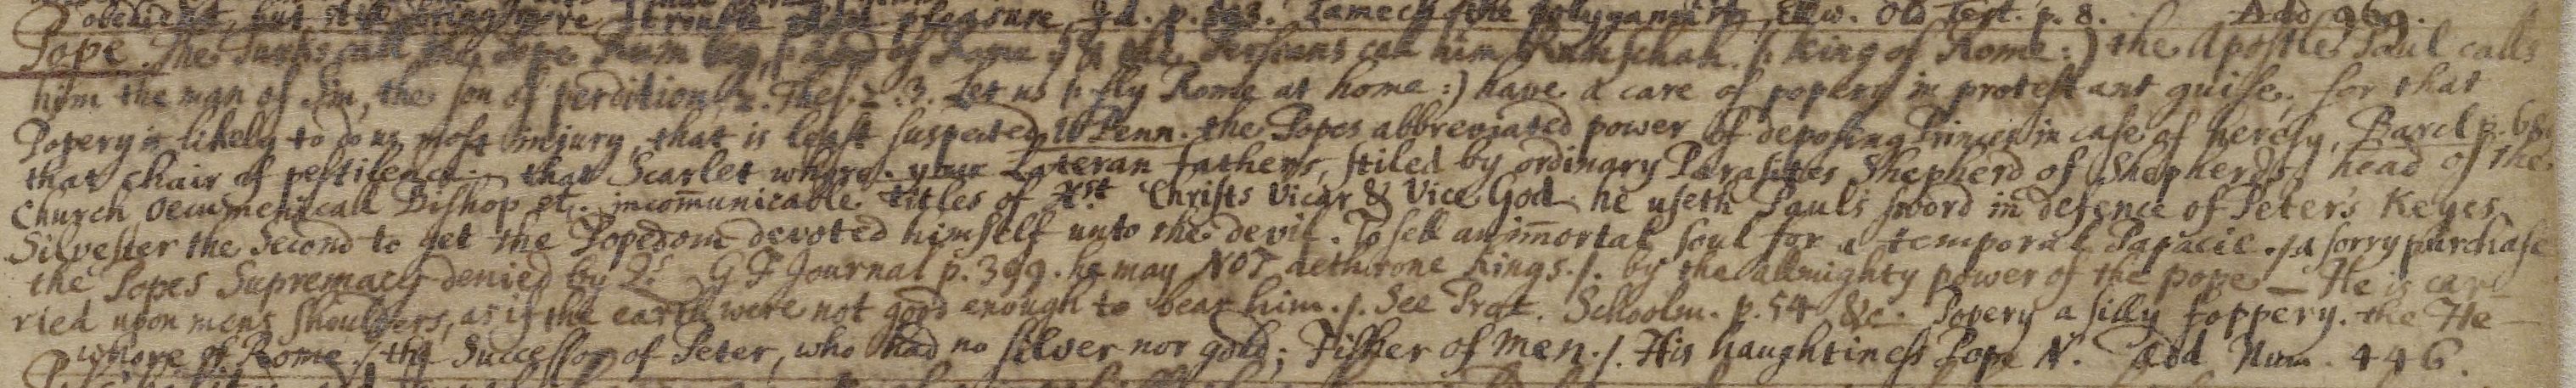 obedient, but it is bring more trouble than pleasure, Id. p. 303. Lamech the polygamist, Ellw. Old Test. p. 8. Add 969.
Pope. The Turks call the pope Rum beg, /: Lord of Rome :/ & the Persians call him Rumschah. /: King of Rome :) the Apostle Paul calls
him the man of Sin, the son of perdition, 2. Thes. 2. 3. Let us /: fly Rome at home :) have a care of popery in protestant guise, for that
Popery is likely to do us most injury, that is least suspected. W Penn. the Popes abbreviated power of deposing Princes in case of heresy, Barcl p. 68
that chair of pestilence. that Scarlet whore. your Lateran fathers, stiled by ordinary Parasites Shepherd of Shepherds, head of the
Church Oecumenicall Bishop etc. incom̅unicable titles of Xst. Christs Vicar & Vice God. he useth Paul's sword in defence of Peter's Keyes.
Silvester the Second to get the Popedom devoted himself unto the devil. To sell an im̅ortal soul for a temporal Papacie. /. a sorry purchase
the Popes Supremacy denied by Qs G F Journal p. 399. he may NOT dethrone Kings. /. by the allmighty power of the pope — He is car-
ried upon mens shoulders, as if the earth were not good enough to bear him. /. See Prat. Schoolm. p. 54 &c. Popery a silly foppery. the He-
whore of Rome. /. the Successor of Peter, who had no silver nor gold; Fisher of Men. /. His haughtiness Pope N. Add Num. 446.